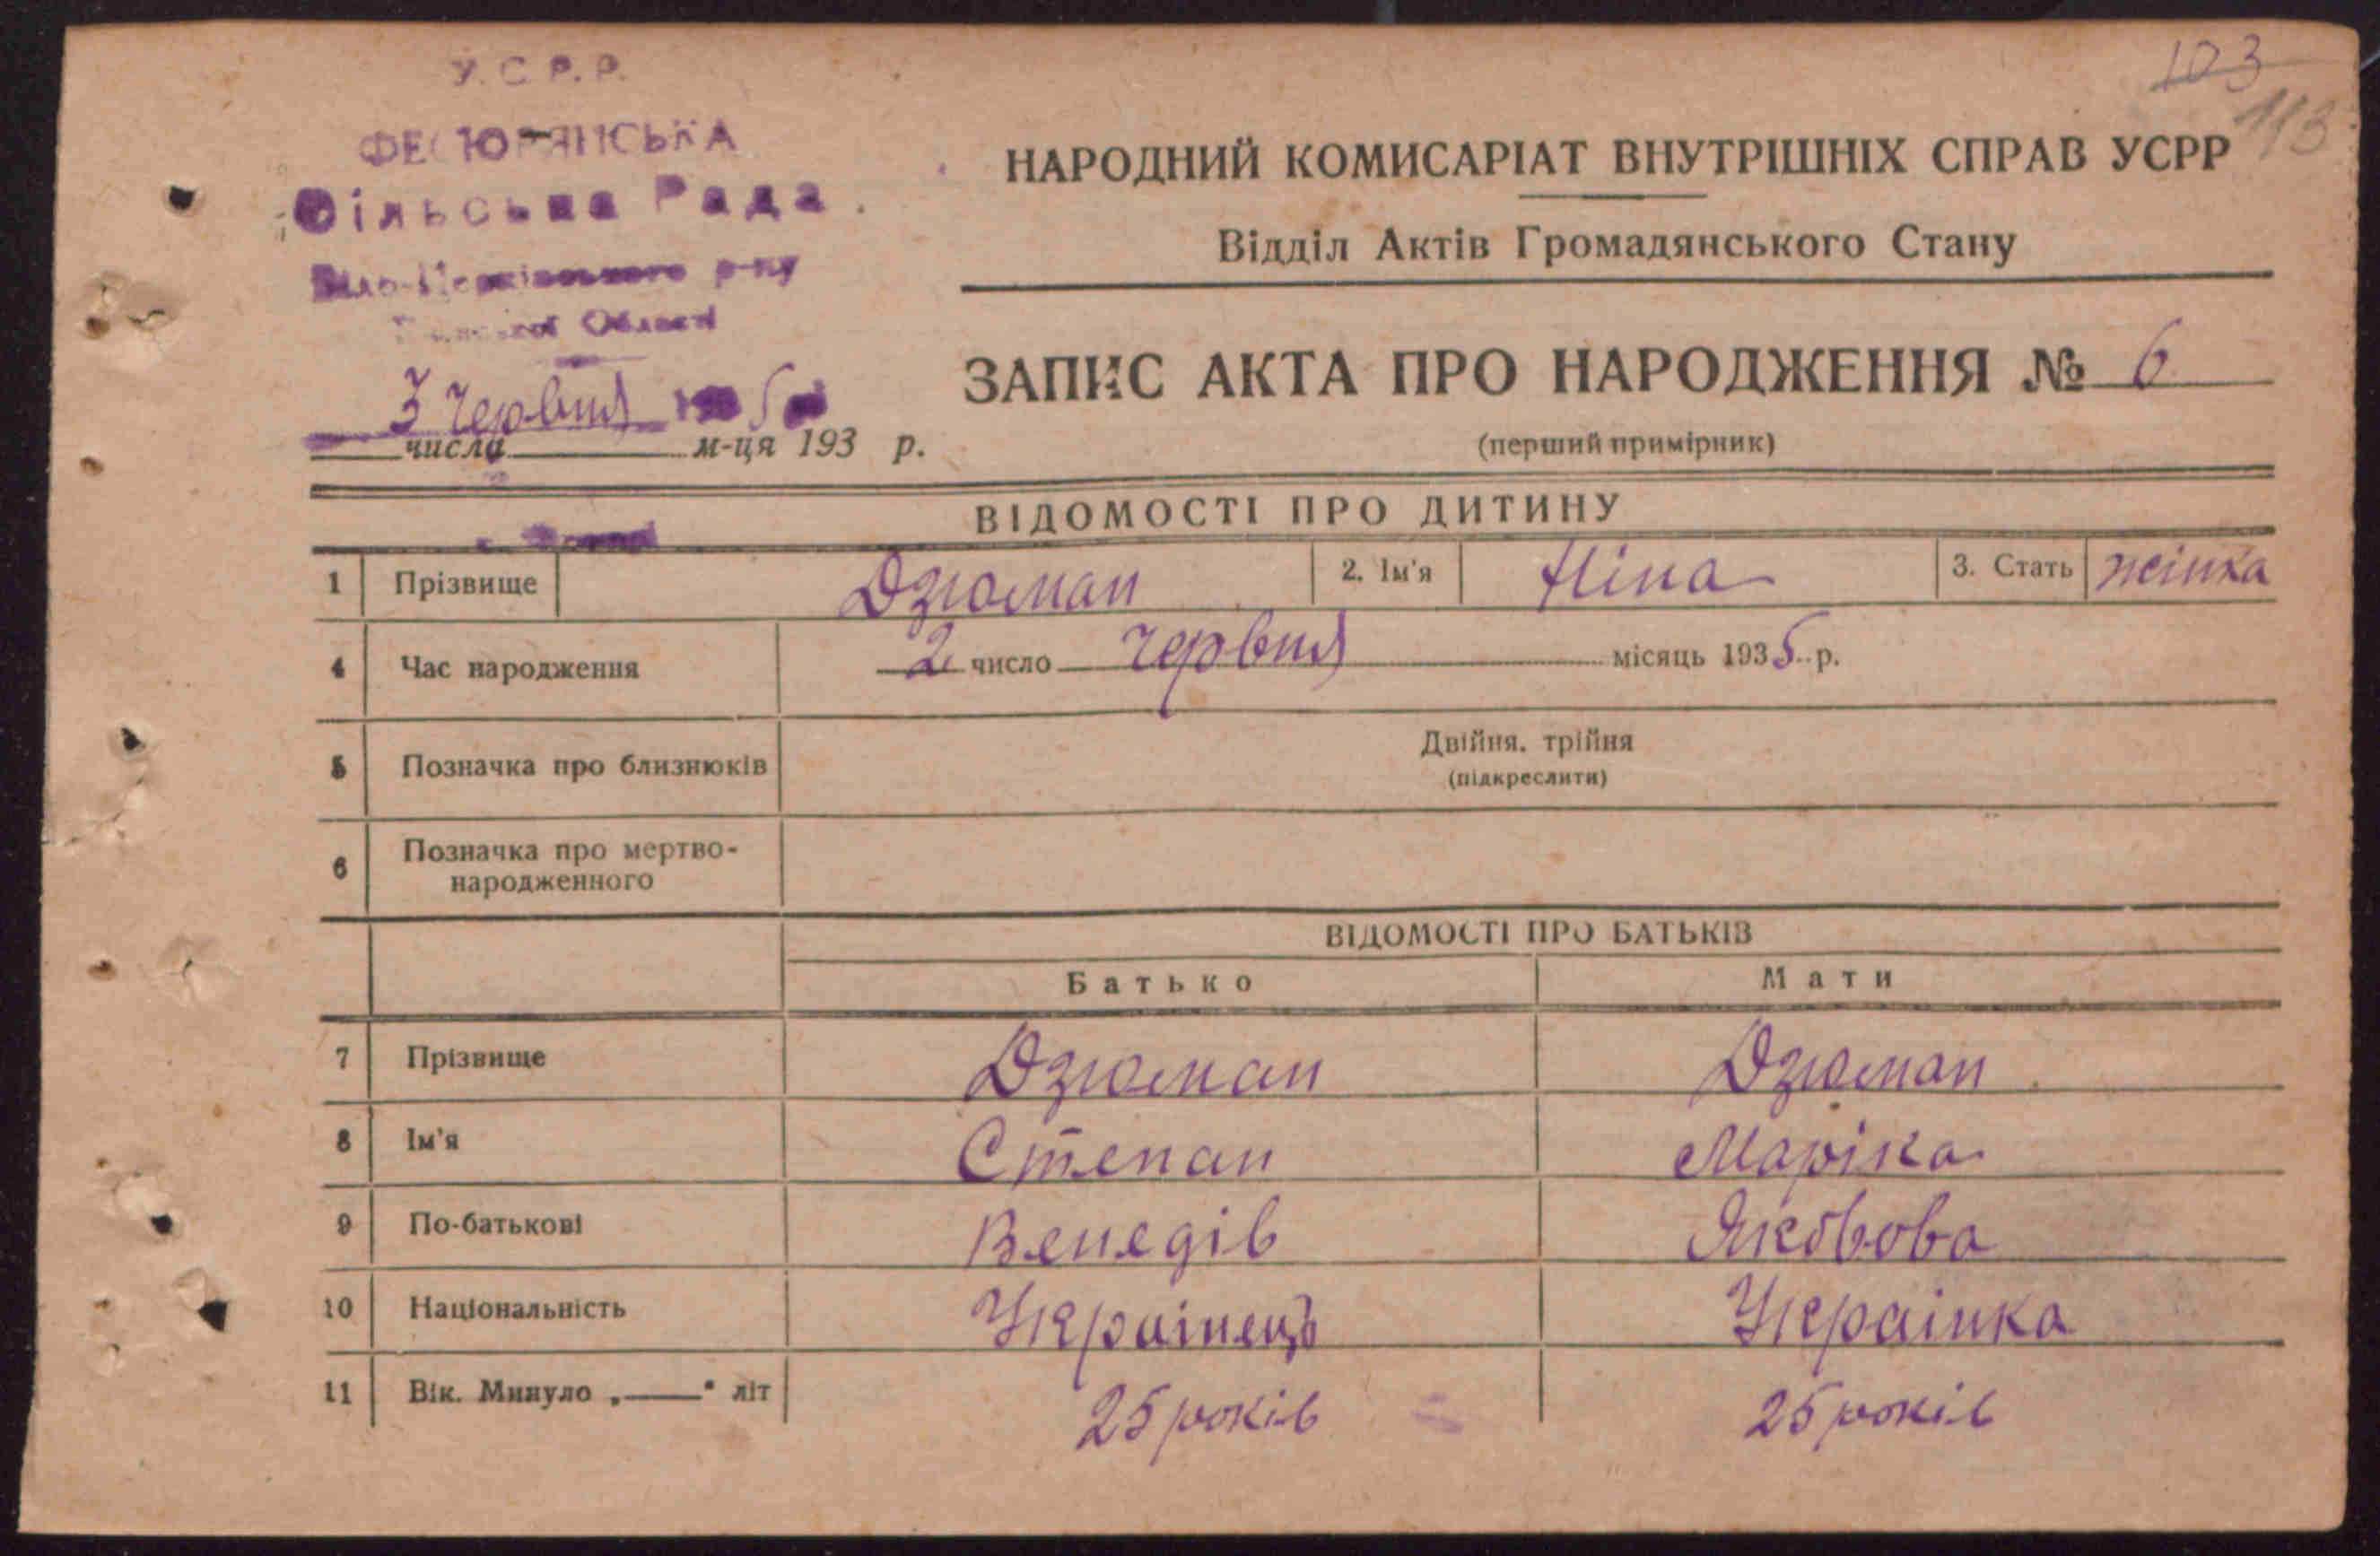 У.С.Р.Р.
103
113
ФЕСЮРЯНСЬКА
Сільська Рада
Біло-Церківського р-ну
Області
3 червня 1935
числа м-ця 193 р.
НАРОДНИЙ КОМИСАРІАТ ВНУТРІШНІХ СПРАВ УСРР
Відділ Актів Громадянського Стану
ЗАПИС АКТА ПРО НАРОДЖЕННЯ № 6
(перший примірник)
ВІДОМОСТІ ПРО ДИТИНУ
1 Прізвище Дзюман 2. Ім'я Ніна 3. Стать жінка
4 Час народження 2 число червня місяць 1935 р.
5 Позначка про близнюків Двійня. трійня
(підкреслити)
6 Позначка про мертво-
народженного
ВІДОМОСТІ ПРО БАТЬКІВ
Батько Мати
7 Прізвище Дзюман Дзюман
8 Ім'я Степан Маріка
9 По-батькові Венедів Яковова
10 Національність Українець Українка
11 Вік. Минуло „——“ літ 25 років 25 років